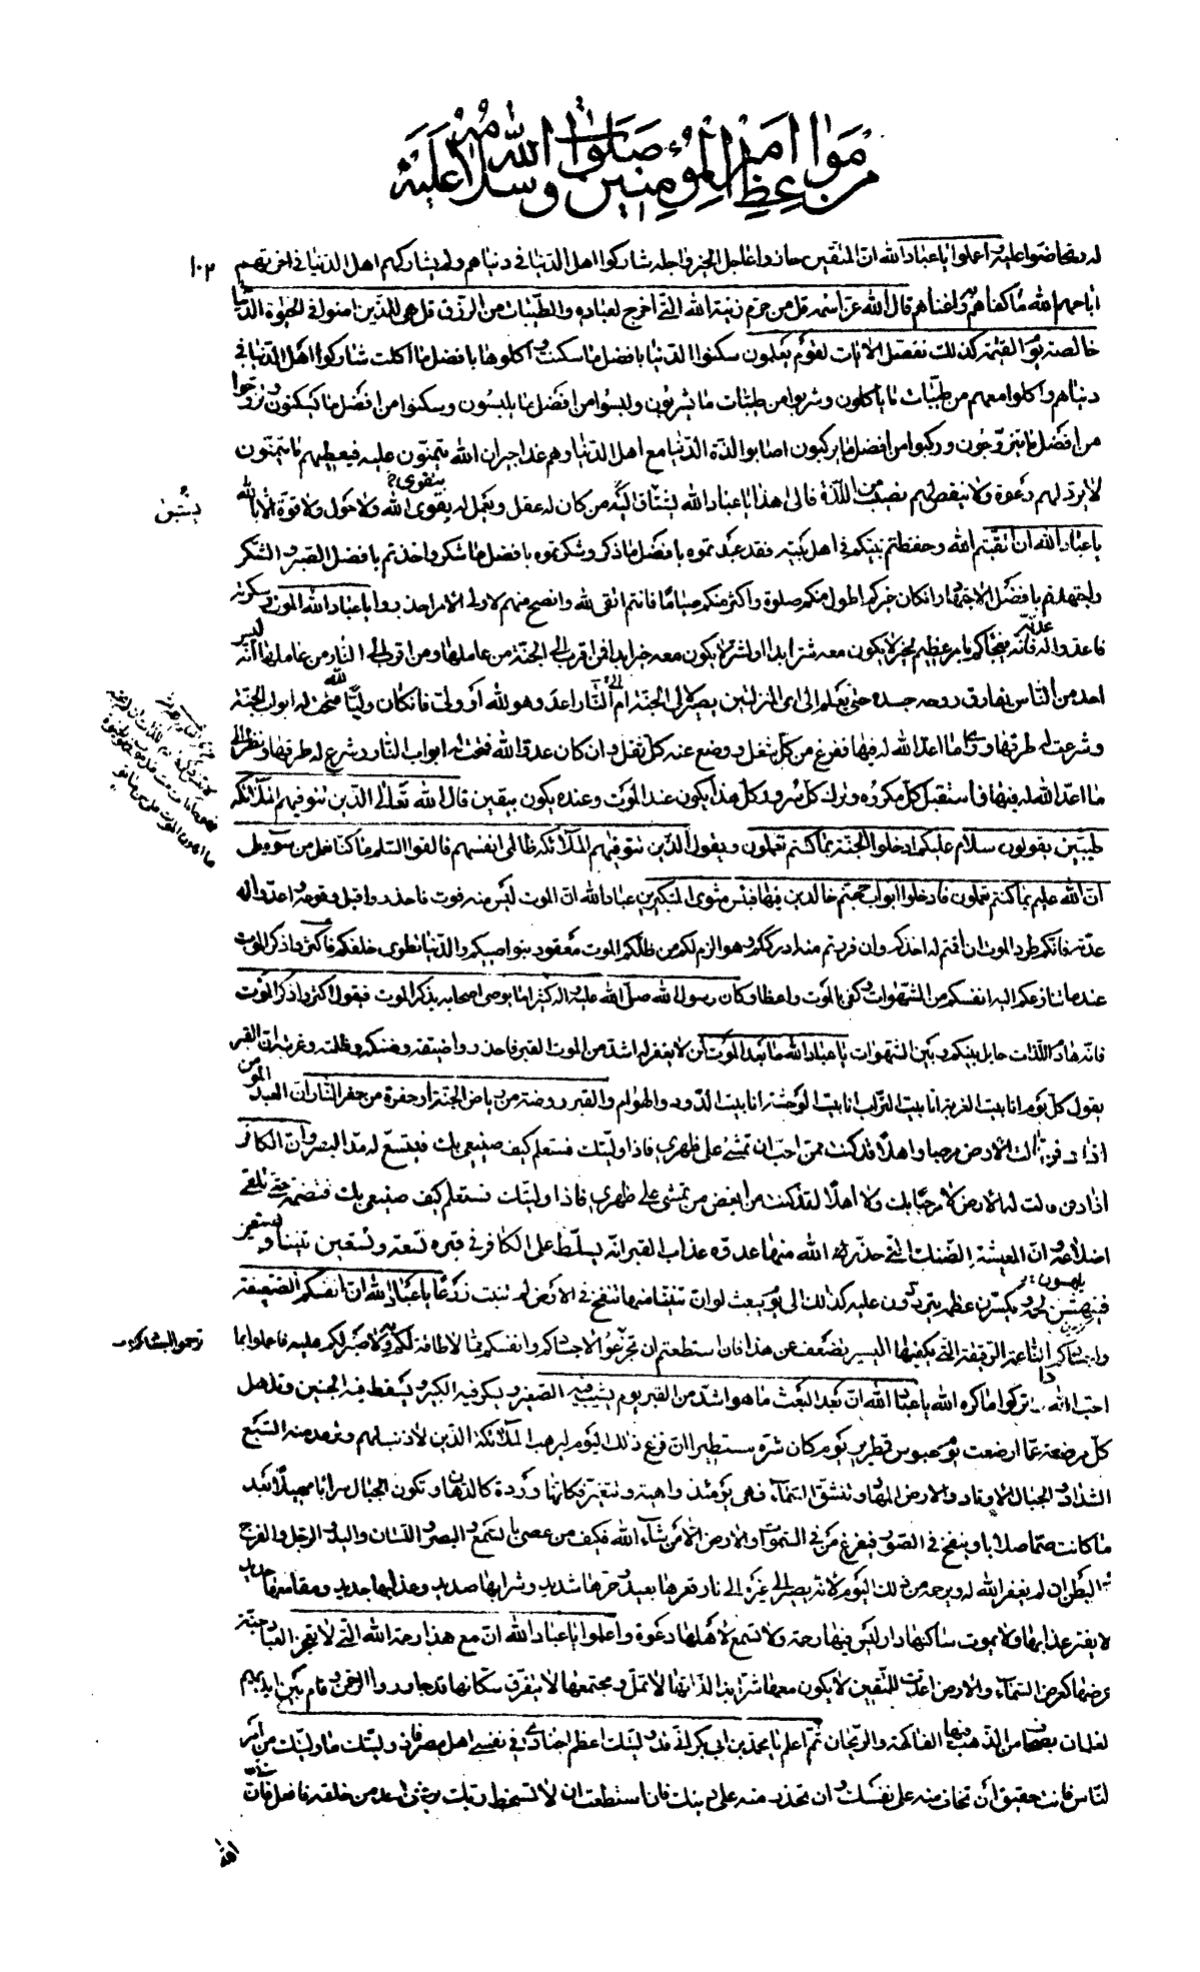 من مواعظ امير المؤمنين صلوات الله وسلامه عليه
واعلموا يا عباد الله ان المتقين حازوا عاجل الخير واجله شاركوا اهل الدنيا في دنياهم ولم يشاركهم اهل الدنيا في اخرتهم
١٠٢
اباحهم الله ما كفاهم به واغناهم قال الله عز اسمه قل من حرم زينة الله التي اخرج لعباده والطيبات من الرزق قل هي للذين امنوا في الحيوة الدنيا
خالصة يوم القيمة كذلك نفصل الايات لقوم يعلمون سكنوا الدنيا بافضل ما سكنت واكلوها بافضل ما اكلت شاركوا اهل الدنيا في
دنياهم واكلوا معهم من طيبات ما ياكلون وشربوا من طيبات ما يشربون ولبسوا من افضل ما يلبسون وسكنوا من افضل ما يسكنون وتزوجوا
من افضل ما يتزوجون وركبوا من افضل ما يركبون اصابوا لذة الدنيا مع اهل الدنيا وهم غدا جيران الله يتمنون عليه فيعطيهم ما يتمنون
لا يرد لهم دعوة ولا ينقص لهم نصيب من اللذة فالى هذا يا عباد الله يشتاق اليه من كان له عقل ويعمل له بتقوى الله ولا حول ولا قوة الا بالله
يا عباد الله ان اتقيتم الله وحفظتم نبيكم في اهل بيته فقد عبدتموه بافضل ما ذكر وشكرتموه بافضل ما شكر واخذتم بافضل الصبر والشكر
واجتهدتم بافضل الاجتهاد وان كان غيركم اطول منكم صلوة واكثر منكم صياما فانتم اتقى لله وانصح منهم لاولى الامر احذروا يا عباد الله الموت وسكرته
فاعدوا له عدته فانه يفجاكم بامر عظيم بخير لا يكون معه شر ابدا او بشر لا يكون معه خير ابدا فمن اقرب الى الجنة من عاملها ومن اقرب الى النار من عاملها انه ليس
احد من الناس يفارق روحه جسده حتى يعلم الى اى المنزلتين يصير الى الجنة ام الى النار اعدو هو لله او ولى فان كان وليا لله فتحت له ابواب الجنة
وشرعت له طرقها وراى ما اعد الله له فيها ففرغ من كل شغل ووضع عنه كل ثقل وان كان عدوا لله فتحت له ابواب النار وشرع له طرقها ونظر الى
ما اعد الله له فيها فاستقبل كل مكروه وترك كل سرور كل هذا يكون عند الموت وعنده يكون بيقين قال الله تعالى الذين تتوفيهم الملائكة
طيبين يقولون سلام عليكم ادخلوا الجنة بما كنتم تعملون ويقول الذين تتوفيهم الملائكة ظالمى انفسهم فالقوا السلم ما كنا نعمل من سوء بلى
ان الله عليم بما كنتم تعملون فادخلوا ابواب جهنم خالدين فيها فبئس مثوى المتكبرين عباد الله ان الموت ليس منه فوت فاحذروا قبل وقوعه واعدوا له
عدته فانكم طرد الموت ان اقمتم له اخذكم وان فررتم منه ادرككم وهو الزم لكم من ظلكم الموت معقود بنواصيكم والدنيا تطوى خلفكم فاكثروا ذكر الموت
عند ما تنازعكم اليه انفسكم من الشهوات وكفى بالموت واعظا وكان رسول الله صلى الله عليه واله كثيرا ما يوصى اصحابه بذكر الموت فيقول اكثروا ذكر الموت
فانه هادم اللذات حايل بينكم وبين الشهوات يا عباد الله ما بعد الموت لمن لا يغفر له اشد من الموت القبر فاحذروا ضيقه وضنكه وظلمته وغربته ان القبر
يقول كل يوم انا بيت الغربة انا بيت التراب انا بيت الوحشة انا بيت الدود والهوام والقبر روضة من رياض الجنة او حفرة من حفر النار ان العبد المؤمن
اذا دفن قالت له الارض مرحبا واهلا قد كنت ممن احب ان تمشى على ظهرى فاذا وليتك فستعلم كيف صنيعى بك فيتسع له مد البصر وان الكافر
اذا دفن قالت له الارض لا مرحبا بك ولا اهلا لقد كنت من ابغض من يمشى على ظهرى فاذا وليتك فستعلم كيف صنيعى بك فتضمه حتى تلتقى
اضلاعه وان المعيشة الضنك التى حذر الله منها عدوه عذاب القبر انه يسلط على الكافر فى قبره تسعة وتسعين تنينا
فينهشن لحمه ويكسرن عظمه يترددن عليه كذلك الى يوم يبعث لو ان تنينا منها نفخ في الارض لم تنبت زرعا يا عباد الله ان انفسكم الضعيفة
واجسادكم الناعمة الرقيقة التى يكفيها اليسير تضعف عن هذا فان استطعتم ان تجزعوا لاجسادكم وانفسكم مما لا طاقة لكم به ولا صبر لكم عليه فاعملوا بما
احب الله واتركوا ما كره الله يا عباد الله ان بعد البعث ما هو اشد من القبر يوم يشيب فيه الصغير ويسكر فيه الكبير ويسقط فيه الجنين وتذهل
كل مرضعة عما ارضعت يوم عبوس قمطرير يوم كان شره مستطيرا ان فزع ذلك اليوم ليرهب الملائكة الذين لا ذنب لهم وترعد منه السبع
الشداد والجبال الاوتاد والارض المهاد وتنشق السماء فهى يومئذ واهية وتتغير فكانها وردة كالدهان وتكون الجبال سرابا مهيلا بعد
ما كانت صما صلابا وينفخ في الصور فيفزع من في السموات والارض الا من شاء الله فكيف من عصى بالسمع والبصر واللسان واليد والرجل والفرج
والبطن ان لم يغفر الله له ويرحمه من ذلك اليوم لانه يصير الى غيره الى نار قعرها بعيد وحرها شديد وشرابها صديد وعذابها جديد ومقامعها حديد
لا يفتر عذابها ولا يموت ساكنها دار ليس فيها رحمة ولا تسمع لاهلها دعوة واعلموا يا عباد الله ان مع هذا رحمة الله التى لا تعجز العباد جنة
عرضها كعرض السماء والارض اعدت للمتقين لا يكون معها شر ابدا لذاتها لا تمل ومجتمعها لا يتفرق سكانها قد جاوروا الرحمن وقام بين ايديهم
الغلمان بصحاف من الذهب فيها الفاكهة والريحان ثم اعلم يا محمد بن ابى بكر انى قد وليتك اعظم اجنادى في نفسى اهل مصر فاذ وليتك ما وليتك من امر
الناس فانت حقيق ان تخاف منه على نفسك وان تحذر منه على دينك فان استطعت ان لا تسخط ربك برضى احد من خلقه فافعل فان
الله